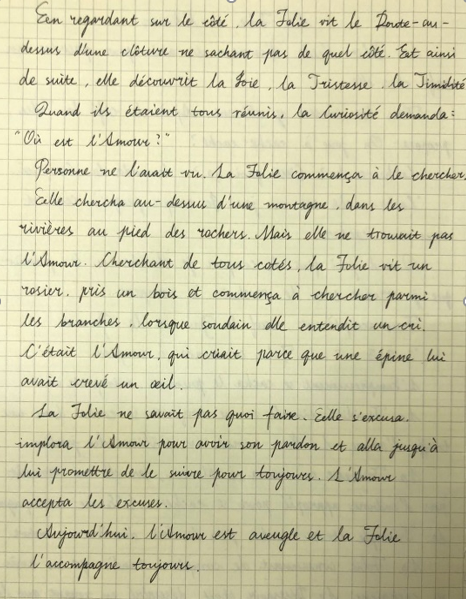 Een regardant sur le côté, la Folie vit le Doute au-
dessus d'une clôture ne sachant pas de quel côté. Est ainsi
de suite, elle découvrit la Joie, la Tristesse, la Timidité
Quand ils étaient tous réunis, la Curiosité demanda:
"Où est l'Amour?"
Personne ne l'avait vu. La Folie commença à le chercher.
Eelle chercha au-dessus d'une montagne, dans les
rivières au pied des rochers. Mais elle ne trouvait pas
l'Amour. Cherchant de tous cotés, la Folie vit un
rosier, pris un bois et commença à chercher parmi
les branches, lorsque soudain elle entendit un cri.
C'était l'Amour, qui criait parce que une épine lui
avait crevé un œil.
La Folie ne savait pas quoi faire. Eelle s'excusa,
implora l'Amour pour avoir son pardon et alla jusqu'à
lui promettre de le suivre pour toujours. L'Amour
accepta les excuses.
Aujourd'hui, l'Amour est aveugle et la Folie
l'accompagne toujours.